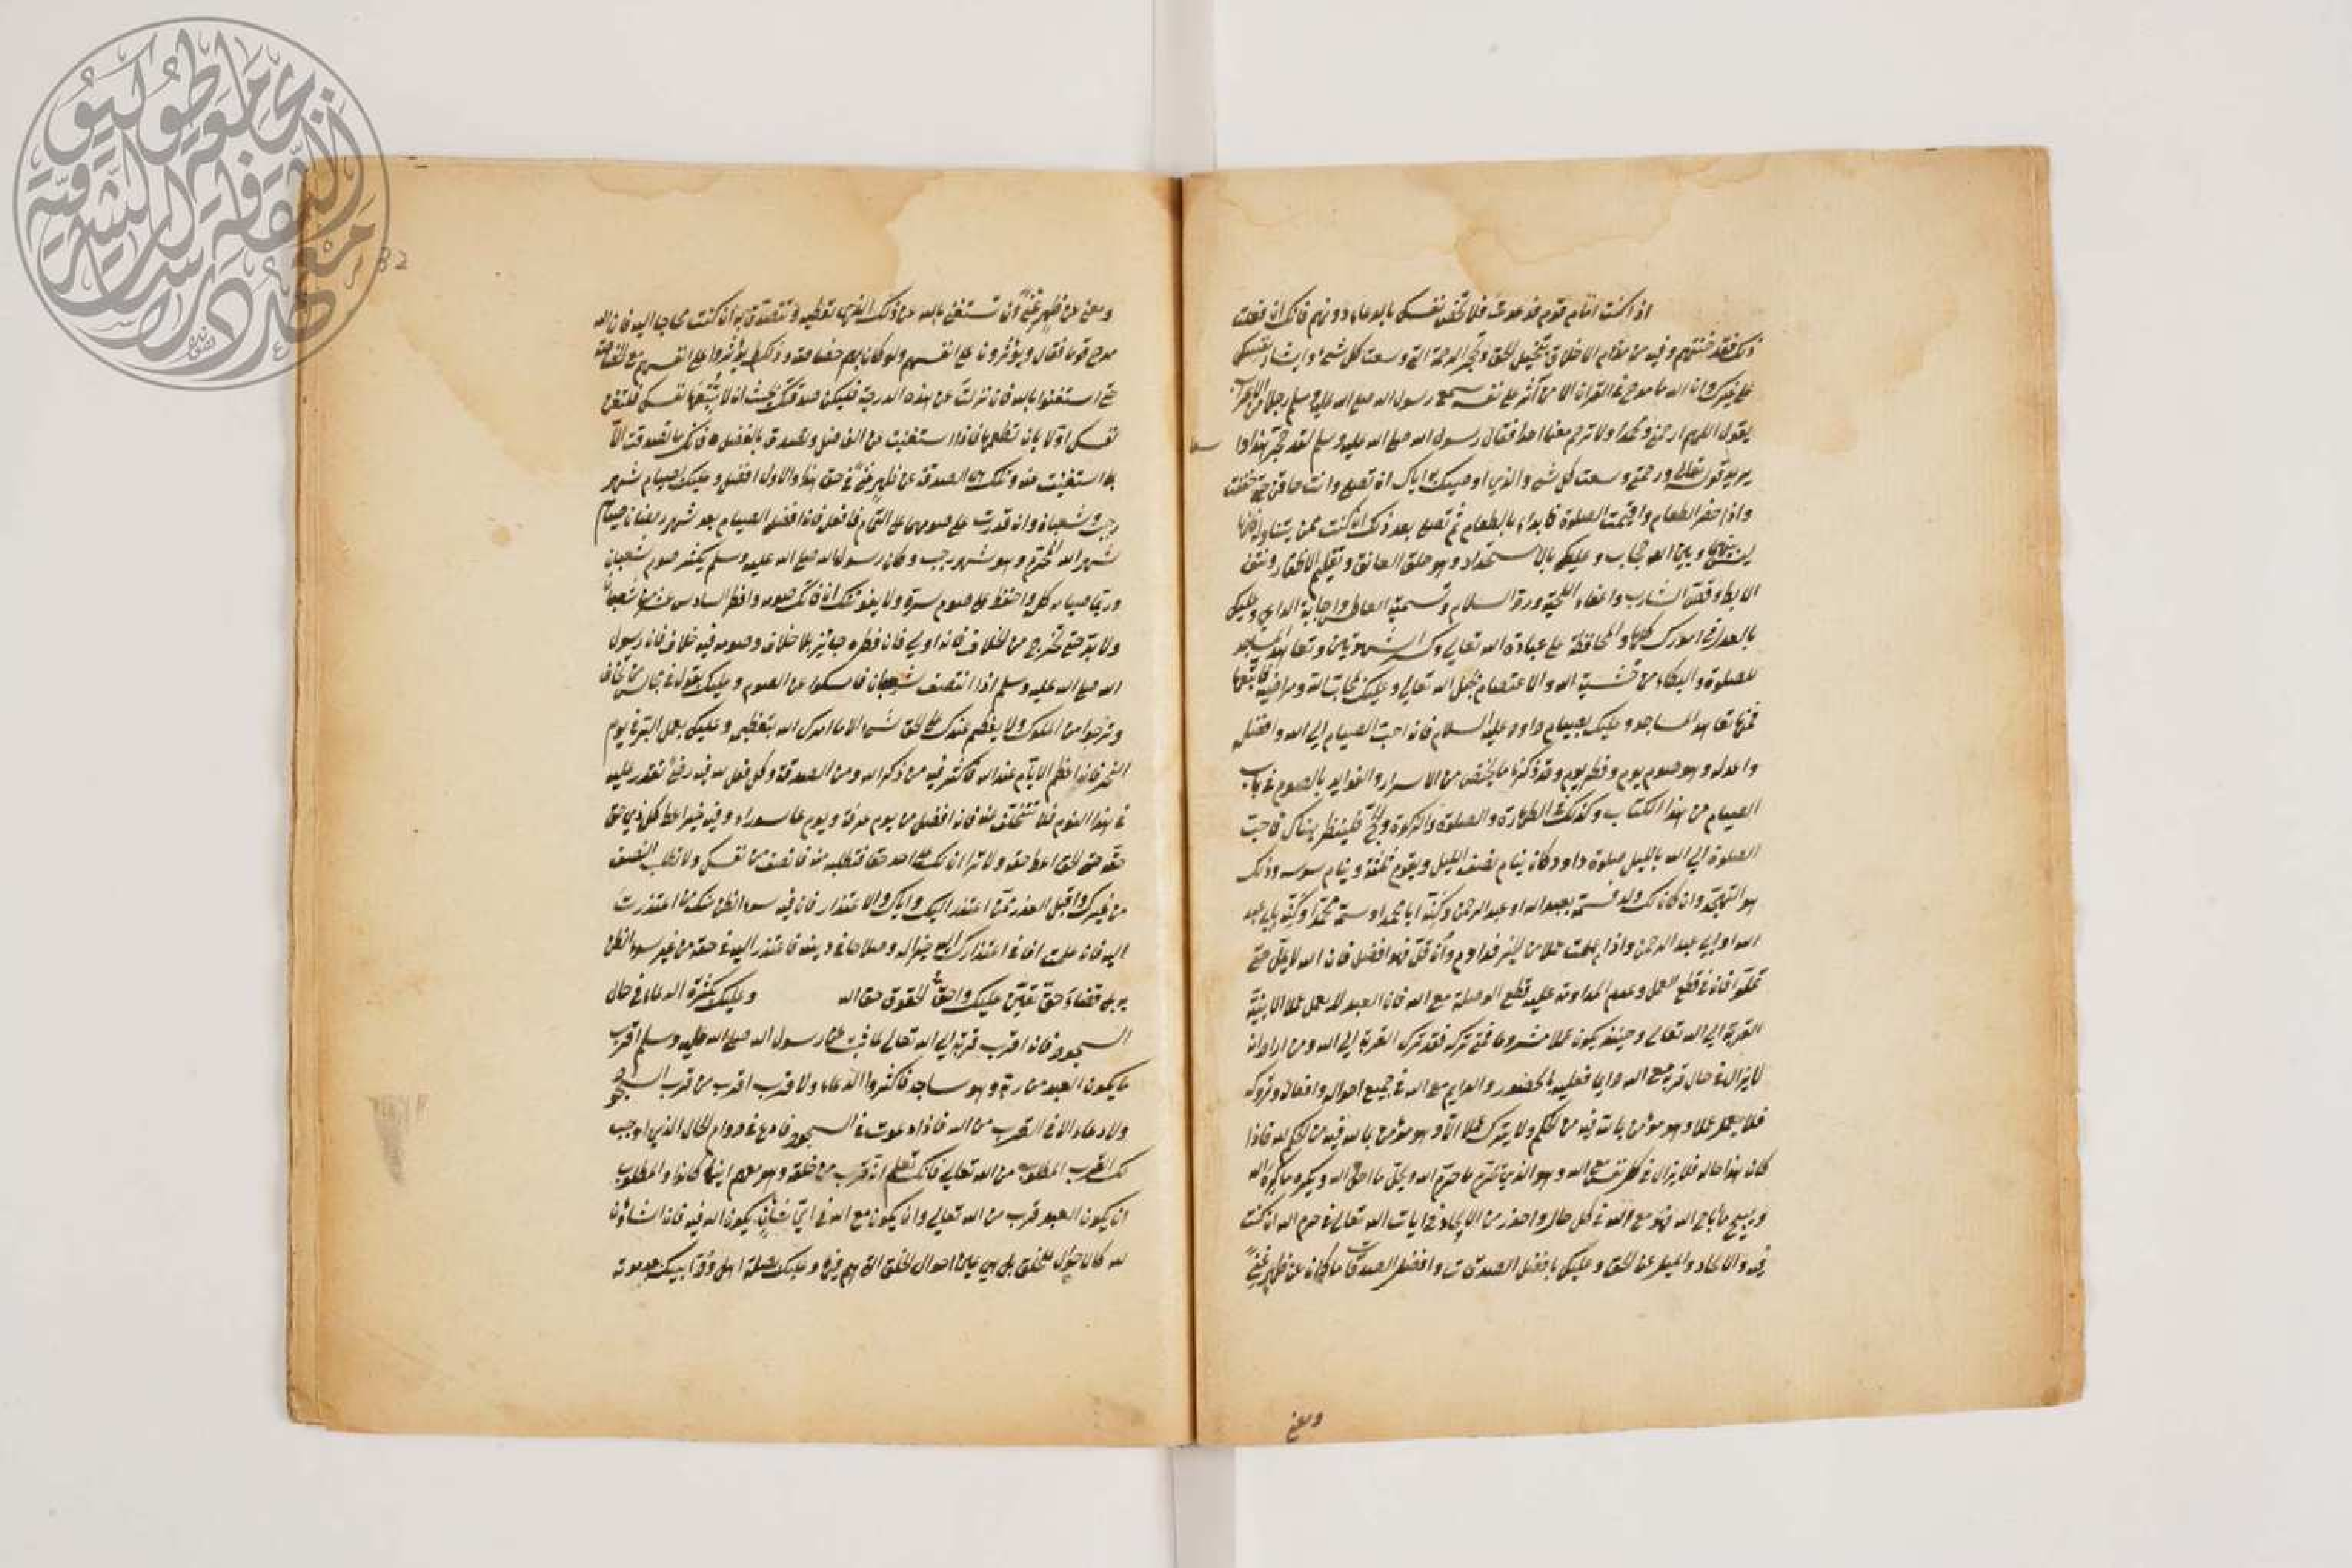 اذا كنت امام قوم فدعوت فلا تخص نفسك بالدعاء دونهم فانك ان فعلت
ذلك فقد خنتهم وفيه من مذام الاخلاق تبخيل الحق وتحجير الرحمة التي وسعت كل شئ وايثار نفسك
على غيرك وان الله ما مدح في القران الا من آثر على نفسه سمع رسول الله صلى الله عليه وسلم رجلا من الاعراب
يقول اللهم ارحمني ومحمدا ولا ترحم معنا احدا فقال رسول الله صلى الله عليه وسلم لقد حجر هذا وا
سعا
يريد قوله تعالى ورحمتي وسعت كل شئ والذي اوصيك به اياك ان تصلي وانت حاقن حتى تخفف
واذا حضر الطعام واقيمت الصلوة فابداء بالطعام ثم تصلي بعد ذلك ان كنت ممن يتناوله فانه
بينك وبين الله حجاب وعليك بالاستحداد وهو حلق العانة وتقليم الاظفار ونتف
الابط وقص الشارب واعفاء اللحية ورد السلام وتشميت العاطس واجابة الداعي وعليك
بالعدل في امورك كلها والمحافظة على عبادة الله تعالى وكسر الشهوتين وتعاهد المساجد
للصلوة والبكاء من خشية الله والاعتصام بحبل الله تعالى وعليك بمحاب الله ومراضيه فاتبعها
فمنها تعاهد المساجد وعليك بصيام داود عليه السلام فانه احب الصيام الى الله وافضله
واعدله وهو صوم يوم وفطر يوم وقد ذكرنا ما يختص من الاسرار والفوايد بالصوم في باب
الصيام من هذا الكتاب وكذلك في الطهارة والصلوة والزكوة والحج فلينظر هناك فاحب
الصلوة الى الله بالليل صلوة داود كان ينام نصف الليل ويقوم ثلثه وينام سدسه وذلك
هو التهجد وان كان لك ولد فسمه بعبد الله او عبد الرحمن وكنه ابا محمد او سمه محمدا وكنه بابي عبد
الله او ابي عبد الرحمن واذا عملت عملا من الخير فداوم وان قل فهو افضل فان الله لا يمل حتى
تملوا فان في قطع العمل وعدم المداومة عليه قطع الوصلة مع الله فان العبد لا يعمل عملا الا بنية
القربة الى الله تعالى وحينئذ يكون عملا مشروعا فمتى تركه فقد ترك القربة الى الله ومن اراد ان
لا يزال في حال قربة مع الله دايما فعليه بالحضور الدايم مع الله في جميع احواله وافعاله وتروكه
فلا يعمل عملا وهو مؤمن بالله فيه من الحكم ولا يترك عملا الا وهو مؤمن بما لله فيه من الحكم لله فاذا
كان هذا حاله فلا يزال في كل نفس مع الله وهو الذي يحرم ما حرم الله ويحل ما احل الله ويكره ما كره الله
ويبيح ما اباح الله فهو مع الله في كل حال واحذر من الالحاد في ايات الله تعالى في حرم الله ان كنت
فيه والالحاد والميل عن الحق وعليك بافضل الصدقات وافضل الصدقات ما كان عن ظهر غنى
ومعنى
32
ومعنى عن ظهر غنى ان تستغني بالله عن ذلك الذي تعطيه وتتصدق به ان كنت محتاجا اليه فان الله
مدح قوما فقال ويؤثرون على انفسهم ولو كان بهم خصاصة وذلك لم يؤثروا على انفسهم مع الخصاصة
حتى استغنوا بالله فان نزلت عن هذه الدرجة فليكن صدقتك بحيث ان لا يتبعها نفسك فلتغن
نفسك اولا بان تطعمها فاذا استغنيت عن الفاضل وتصدق بالفضل فانك ما تصدقت الا
بما استغنيت عنه وتلك هي الصدقة عن ظهر غنى في حق هذا والاول افضل وعليك بصيام شهر
رجب وشعبان وان قدرت على صومهما على التمام فافعل فان افضل الصيام بعد شهر رمضان صيام
شهر الله المحرم وهو شهر رجب وكان رسول الله صلى الله عليه وسلم يكثر صوم شعبان
وربما صامه كله واحتفظ على صوم سرره ولا يفوتنك ان فاتك صومه وافطر السادس عشر من شعبان
ولا بد حتى تخرج من الخلاف فانه اولى فان فطره جائز بلا خلاف وصومه فيه خلاف فان رسول
الله صلى الله عليه وسلم اذا انتصف شعبان فامسكوا عن الصوم وعليك بقول في مجالس من تخاف
وترجوا من الملوك ولا يعظم عندك على الحق شئ الا ما امرك الله بتعظيمه وعليك بعمل البر في يوم
النحر فانه اعظم الايام عند الله فاكثر فيه من ذكر الله ومن الصدقة وكل فعل لله فيه رضى تقدر عليه
في هذا اليوم فلا تتخلف عنه فانه افضل من يوم عرفة ويوم عاشوراء وفيه خير اعط كل ذي حق
حقه حتى الحق اعط حقه ولا ترا ان لك على احد حقا فتطلبه منه فانصف من نفسك ولا تطلب النصف
من غيرك واقبل العذر ممن اعتذر اليك واياك والاعتذار فان فيه سوء الظن منك بمن اعتذرت
اليه فان علمت ان في اعتذارك اليه خيرا له وصلاحا في دينه فاعتذر اليه في حقه من غير سوء الظن
به بل قضاء حق تعين عليك واحق الحقوق حق الله وعليك بكثرة الدعاء في حال
السجود فانه اقرب قربة الى الله تعالى لما ثبت عن رسول الله صلى الله عليه وسلم اقرب
ما يكون العبد من ربه وهو ساجد فاكثروا الدعاء ولا قرب اقرب من قرب السجود
ولا دعاء الا في القرب من الله فاذا دعوت في السجود فادع في دوام الحال الذي اوجب
لك القرب المطلوب من الله تعالى فانك تعلم انه قريب من خلقه وهو معهم اينما كانوا والمطلوب
ان يكون العبد قريب من الله تعالى وان يكون مع الله في اي شأن يكون الله فيه فان الشأن
لله كالاحوال للخلق بل هي عين احوال الخلق التي هم فيها وعليك بصلة اهل ود ابيك بعد موته